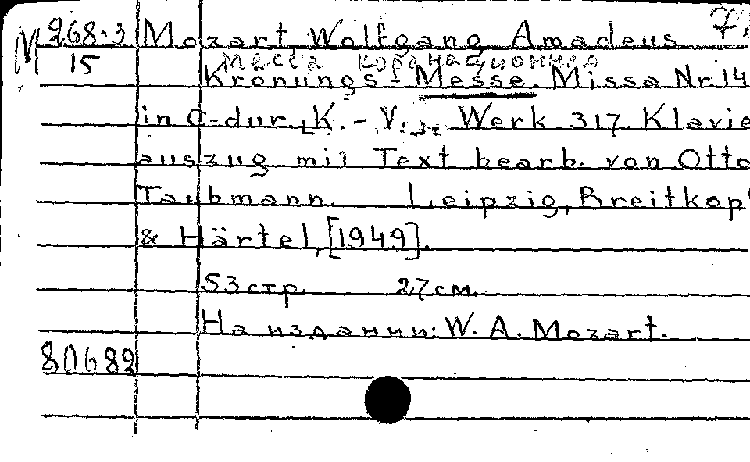 M 268.3 Mozart Wolfgang Amadeus
15 Месса коронационная
Krönungs-Messe. Missa Nr. 14
in C-dur, K.-V., Werk 317. Klavie
auszug mit Text bearb. von Otto
Taubmann. Leipzig, Breitkop
& Härtel, [1949].
53 стр. 27 см.
На издании: W. A. Mozart.
80682